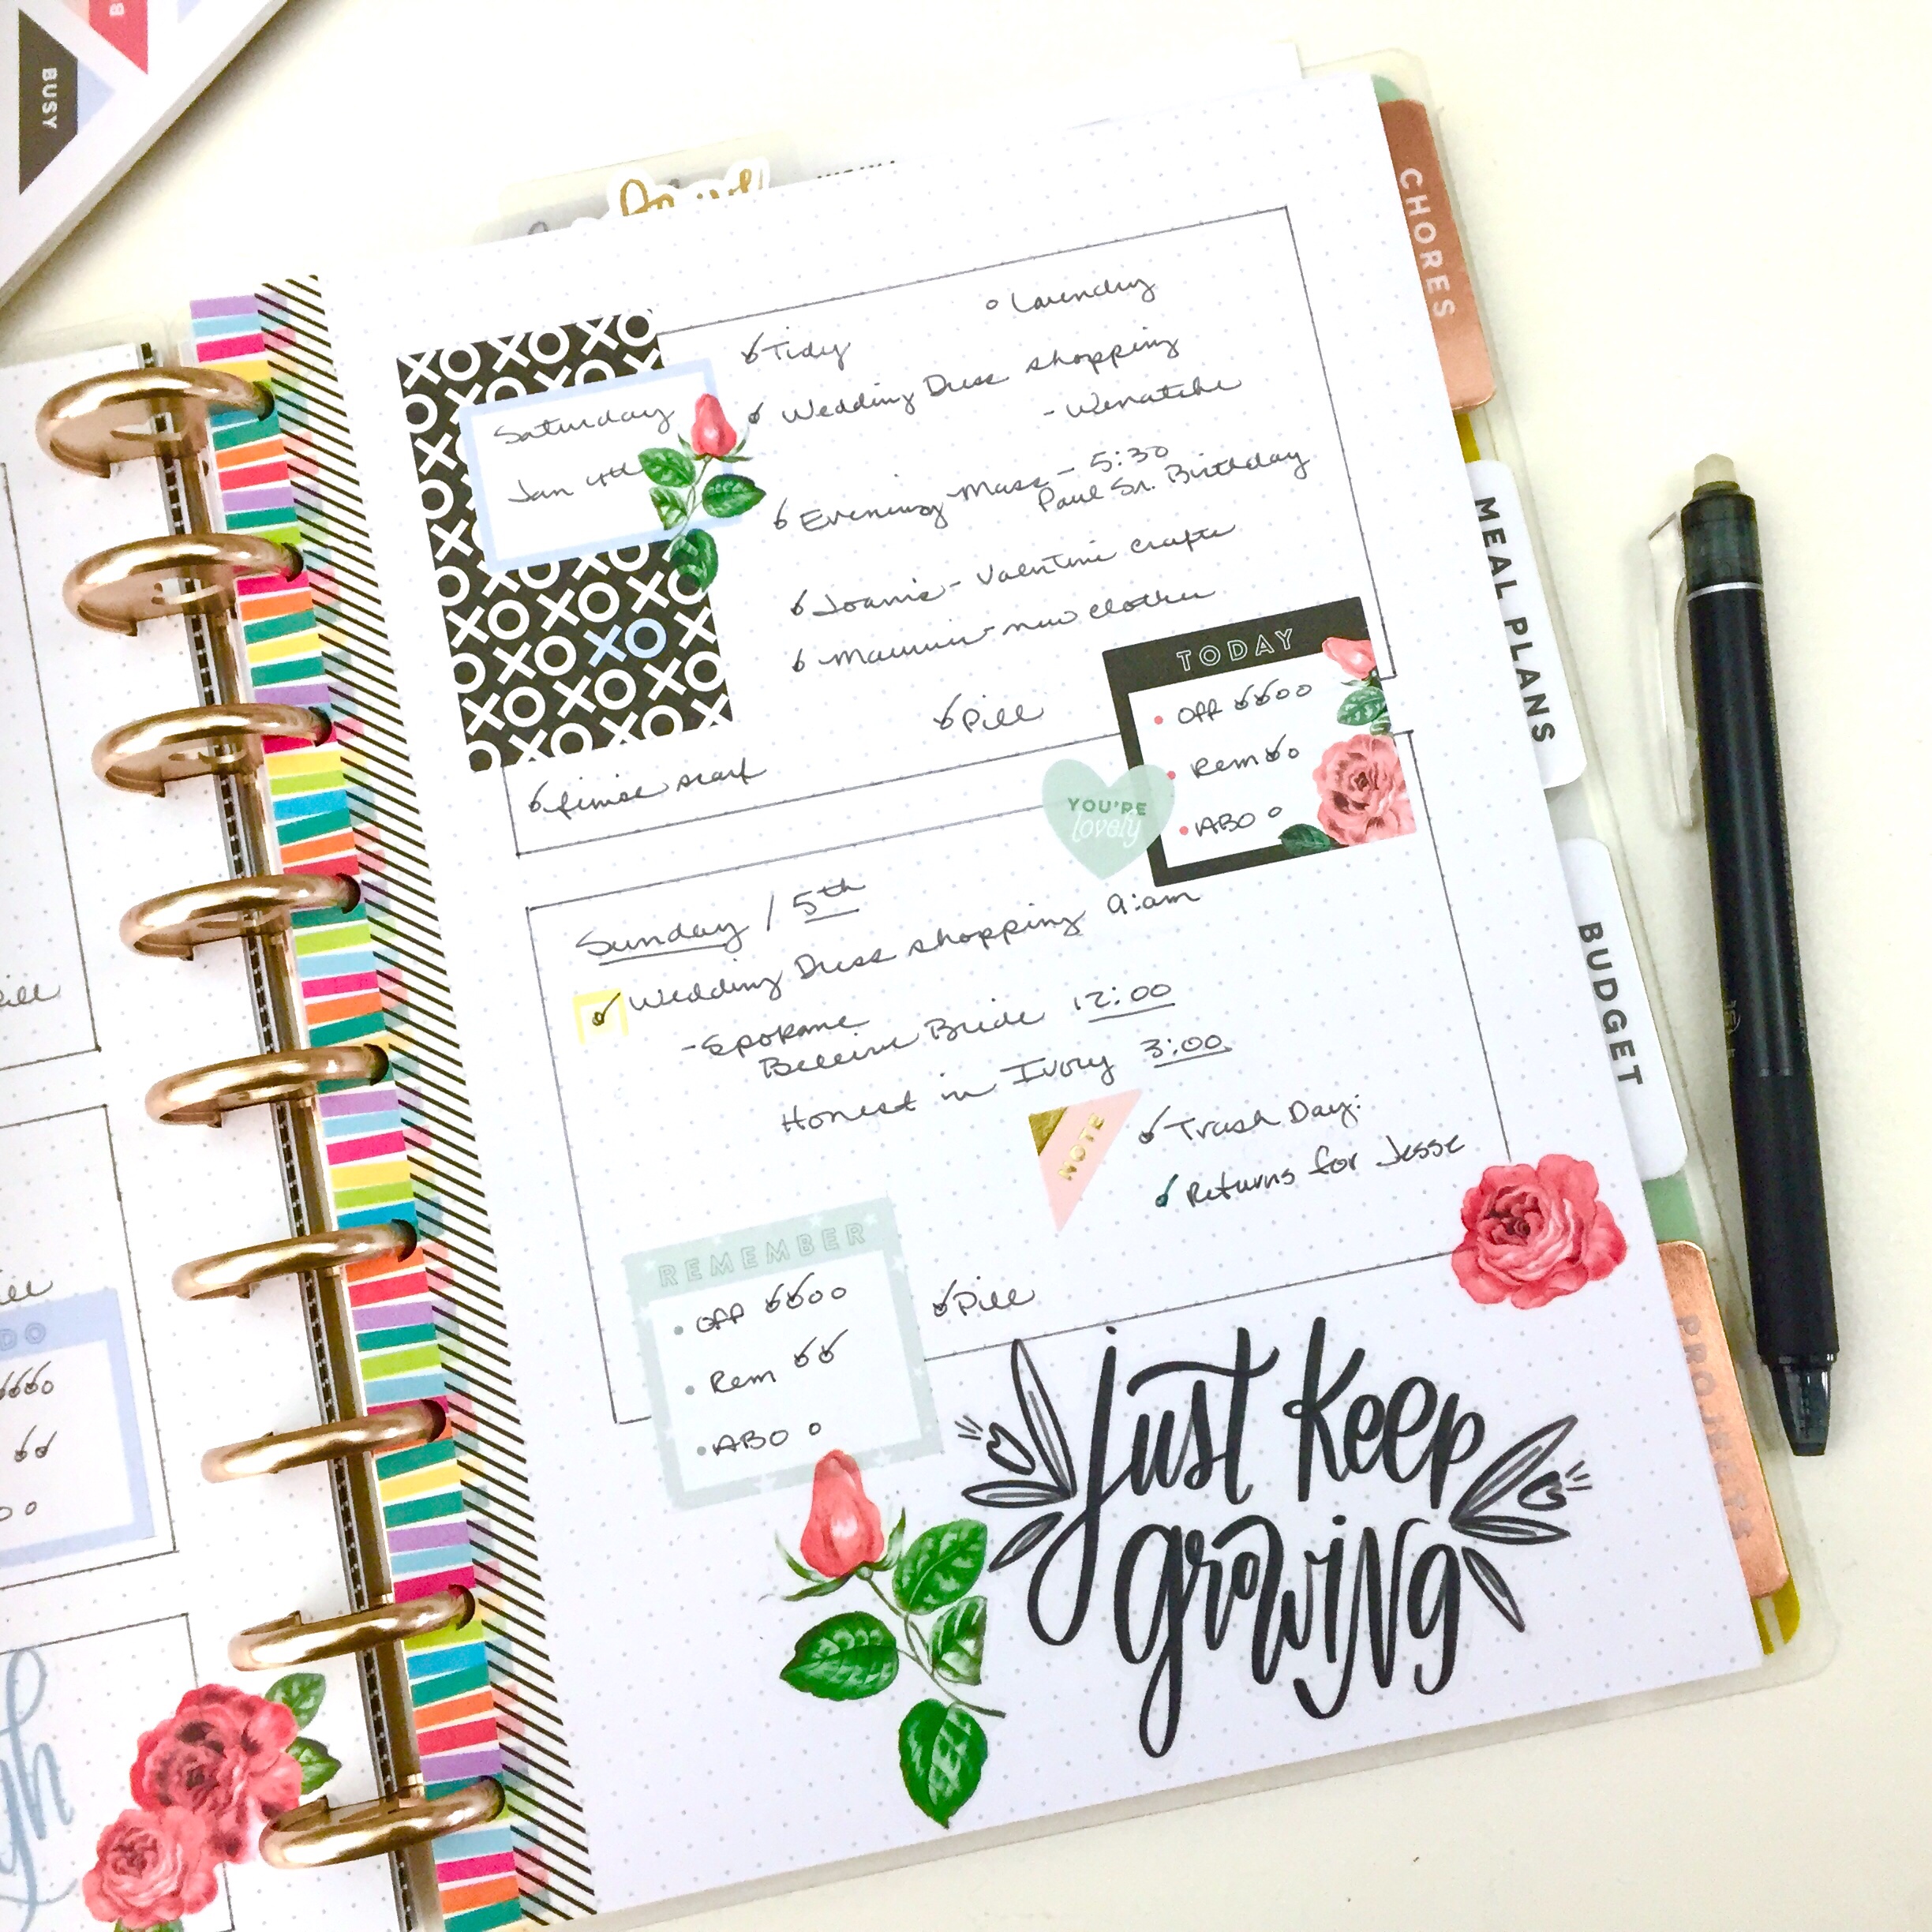 BUSY
Saturday
Jan 4th
Tidy
Laundry
Wedding Dress shopping
- Wenatche
Evening Mass - 5:30
Paul Sr. Birthday
Joann's - Valentine crafts
Maurices - new clothes
Pill
finise scarf
TODAY
Off
Rem
ABO
YOU'RE
lovely
Sunday / 5th
Wedding Dress shopping 9:am
- Spokane
Bride 12:00
Honest in Ivory 3:00
NOTE
Trash Day:
Returns for Jesse
REMEMBER
Off
Rem
ABO
Pill
just keep
growing
CHORES
MEAL PLANS
BUDGET
PROJECTS